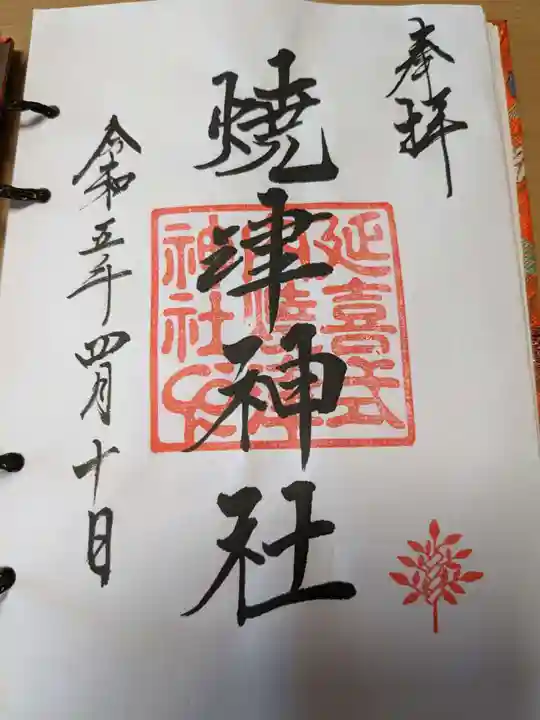 奉拝
燒津神社
延喜式
神社
令和五年四月十日